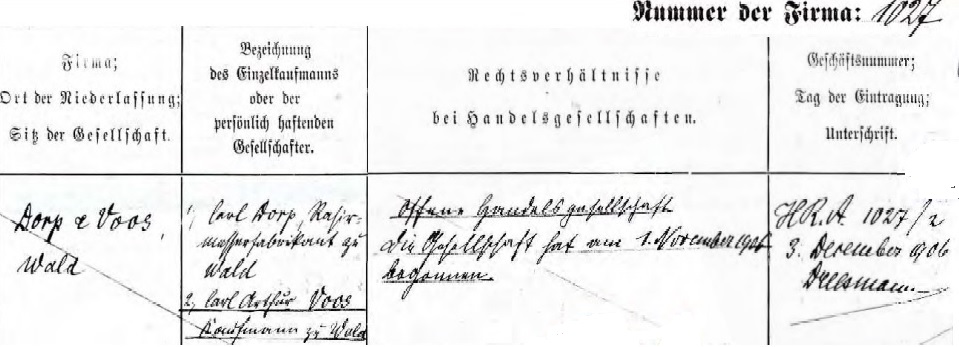 Nummer der Firma: 1027
Firma;
Ort der Niederlassung;
Sitz der Gesellschaft.
Bezeichnung
des Einzelkaufmanns
oder der
persönlich haftenden
Gesellschafter.
Rechtsverhältnisse
bei Handelsgesellschaften.
Geschäftsnummer;
Tag der Eintragung;
Unterschrift.
Dorp & Voos,
Wald
1, Carl Dorp, Rasir-
messerfabrikant zu
Wald
2, Carl Arthur Voos
Kaufmann zu Wald
Offene Handelsgesellschaft
Die Gesellschaft hat am 1. November 1906
begonnen.
H.R.A 1027/2
3. Dezember 1906